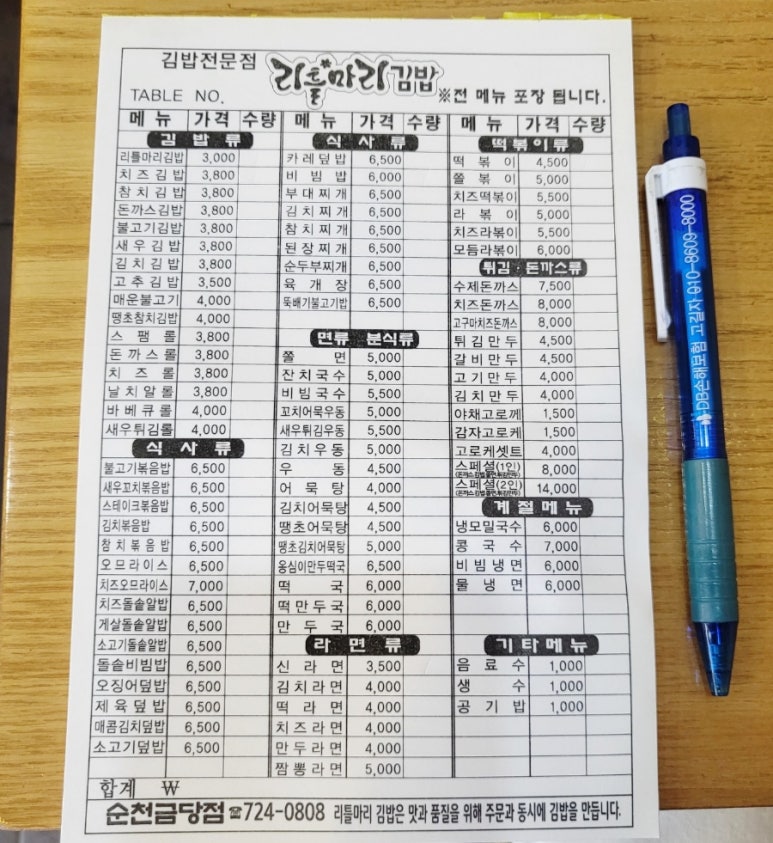 김밥전문점 리틀마리김밥
TABLE NO. ※전 메뉴 포장 됩니다.
메 뉴 가 격 수량
김 밥 류
리틀마리김밥 3,000
치즈김밥 3,800
참치김밥 3,800
돈까스김밥 3,800
불고기김밥 3,800
새우김밥 3,800
김치김밥 3,800
고추김밥 3,500
매운불고기 4,000
땡초참치김밥 4,000
스팸롤 3,800
돈까스롤 3,800
치즈롤 3,800
날치알롤 3,800
바베큐롤 4,000
새우튀김롤 4,000
식 사 류
불고기볶음밥 6,500
새우꼬치볶음밥 6,500
스테이크볶음밥 6,500
김치볶음밥 6,500
참치볶음밥 6,500
오므라이스 6,500
치즈오므라이스 7,000
치즈돌솥알밥 6,500
게살돌솥알밥 6,500
소고기돌솥알밥 6,500
돌솥비빔밥 6,500
오징어덮밥 6,500
제육덮밥 6,500
매콤김치덮밥 6,500
소고기덮밥 6,500
메 뉴 가 격 수량
식 사 류
카레덮밥 6,500
비빔밥 6,000
부대찌개 6,500
김치찌개 6,500
참치찌개 6,500
된장찌개 6,500
순두부찌개 6,500
육개장 6,500
뚝배기불고기밥 6,500
면류 분식류
쫄면 5,000
잔치국수 5,000
비빔국수 5,500
꼬치어묵우동 5,000
새우튀김우동 5,500
김치우동 5,000
우동 4,500
어묵탕 4,000
김치어묵탕 4,500
땡초어묵탕 4,500
땡초김치어묵탕 5,000
옹심이만두떡국 6,500
떡국 6,000
떡만두국 6,000
만두국 6,000
라 면 류
신라면 3,500
김치라면 4,000
떡라면 4,000
치즈라면 4,000
만두라면 4,000
짬뽕라면 5,000
메 뉴 가 격 수량
떡볶이류
떡볶이 4,500
쫄볶이 5,000
치즈떡볶이 5,500
라볶이 5,000
치즈라볶이 5,500
모듬라볶이 6,000
튀김·돈까스류
수제돈까스 7,500
치즈돈까스 8,000
고구마치즈돈까스 8,000
튀김만두 4,500
갈비만두 4,500
고기만두 4,000
김치만두 4,000
야채고로께 1,500
감자고로케 1,500
고로케셋트 4,000
스페셜(1인) 8,000
스페셜(2인) 14,000
계 절 메 뉴
냉모밀국수 6,000
콩국수 7,000
비빔냉면 6,000
물냉면 6,000
기 타 메 뉴
음료수 1,000
생수 1,000
공기밥 1,000
합계 ₩
순천금당점 ☎724-0808 리틀마리 김밥은 맛과 품질을 위해 주문과 동시에 김밥을 만듭니다.
DB손해보험 고길자 010-8609-8000